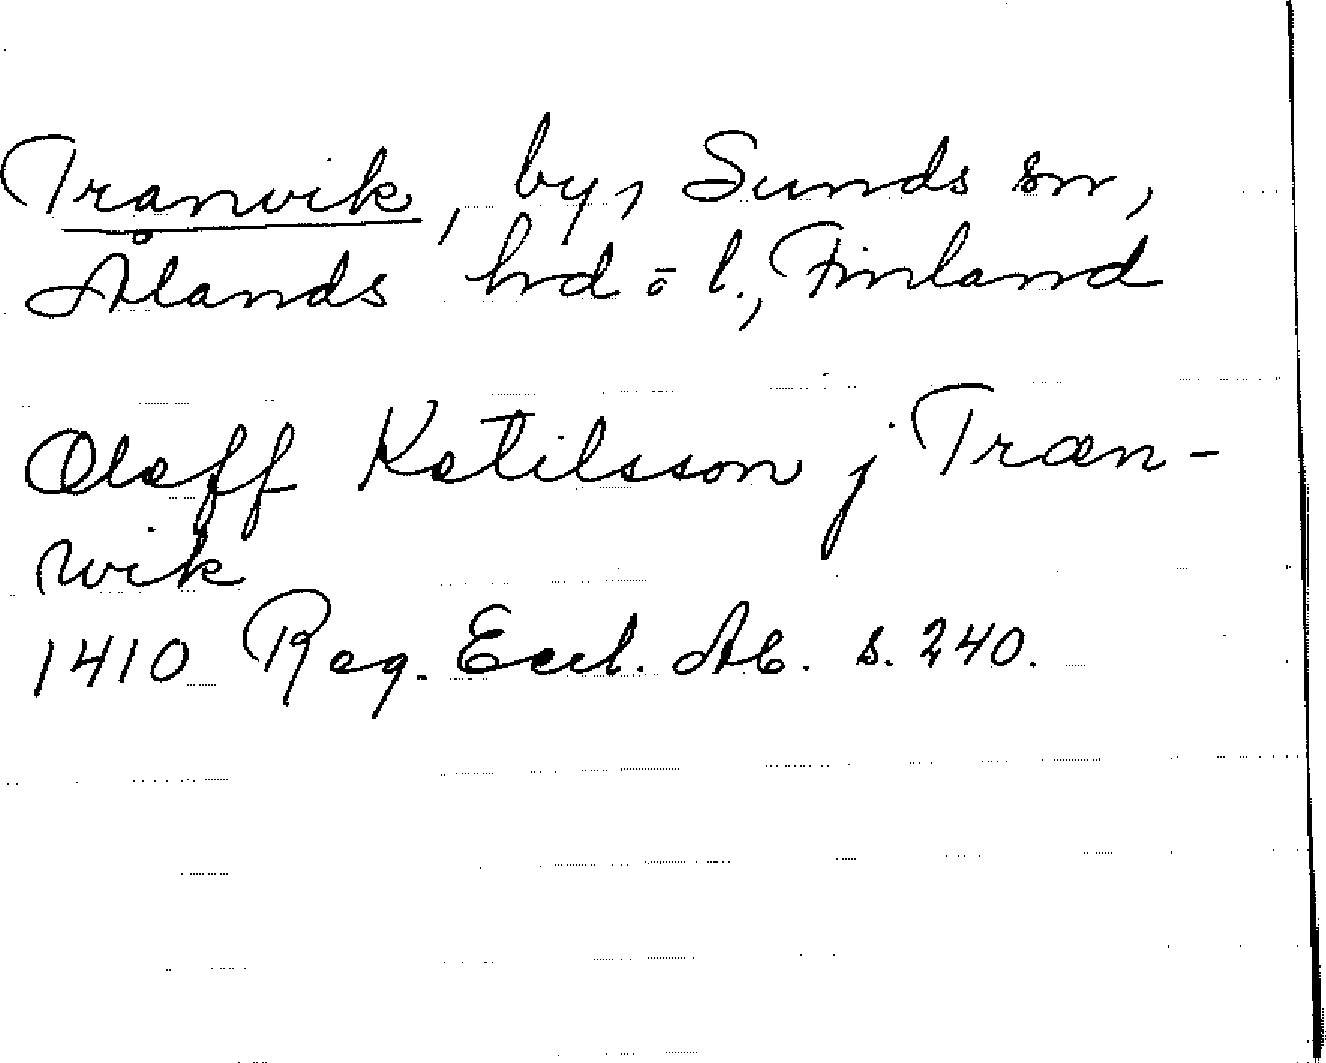 Tranvik, by, Sunds sn,
Ålands hd o l., Finland
Oleff Ketilsson j Træn-
wik
1410 Reg. Eccl. Ab. s. 240.